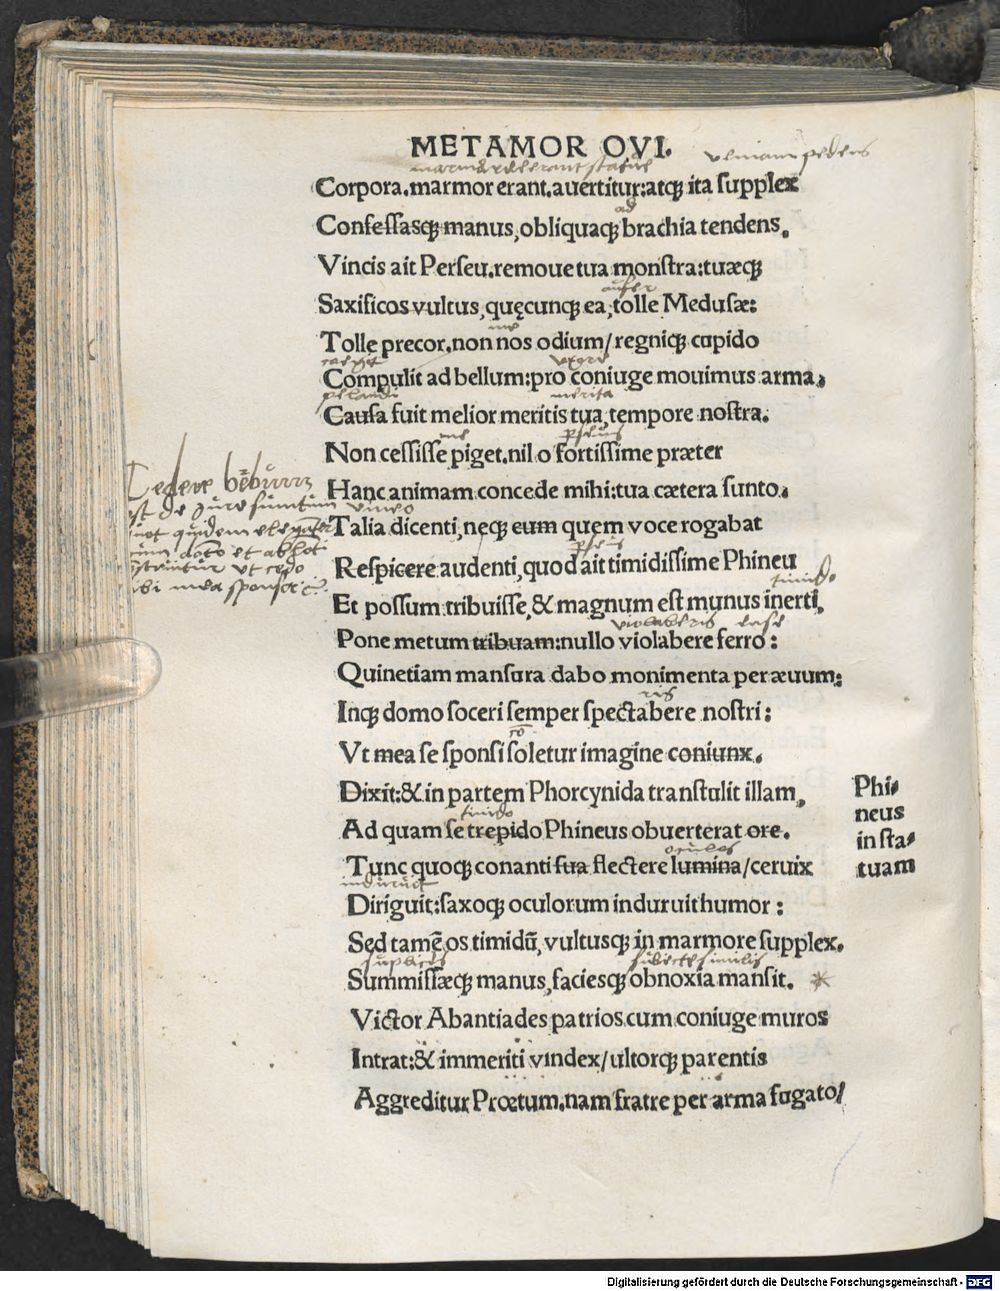 METAMOR OVI.
veniam petens
Corpora.marmor erant.auertitur:atqꝫ ita supplex
ad
Confessasqꝫ manus,obliquaqꝫ brachia tendens.
Vincis ait Perseu.remoue tua monstra:tuæqꝫ
aufer
Saxificos vultus,quęcunqꝫ ea,tolle Medusæ:
me
Tolle precor.non nos odium/regniqꝫ cupido
Compulit ad bellum:pro coniuge mouimus arma.
merita
Causa fuit melior meritis tua,tempore nostra.
me pseus
Non cessisse piget.nil o fortissime præter
Hanc animam concede mihi:tua cætera sunto.
Talia dicenti,neqꝫ eum quem voce rogabat
pseus
Respicere audenti,quod ait timidissime Phineu
timido
Et possum tribuisse,& magnum est munus inerti,
violaberis ense
Pone metum tribuam:nullo violabere ferro:
Quinetiam mansura dabo monimenta per æuum:
ris
Inqꝫ domo soceri semper spectabere nostri:
Vt mea se sponsi soletur imagine coniunx.
Dixit:& in partem Phorcynida transtulit illam,
timido
Ad quam se trepido Phineus obuerterat ore.
oculos
Tunc quoqꝫ conanti sua flectere lumina/ceruix
Diriguit:saxoqꝫ oculorum induruit humor:
Sed tamē os timidū, vultusqꝫ in marmore supplex.
suplices similis
Summissæqꝫ manus,faciesqꝫ obnoxia mansit. *
Victor Abantiades patrios cum coniuge muros
Intrat:& immeriti vindex/ultorqꝫ parentis
Aggreditur Prœtum.nam fratre per arma fugato/
Cedere
est de iure
quidem
et
ut cedo
mea
Phi-
neus
in sta-
tuam
Digitalisierung gefördert durch die Deutsche Forschungsgemeinschaft - DFG